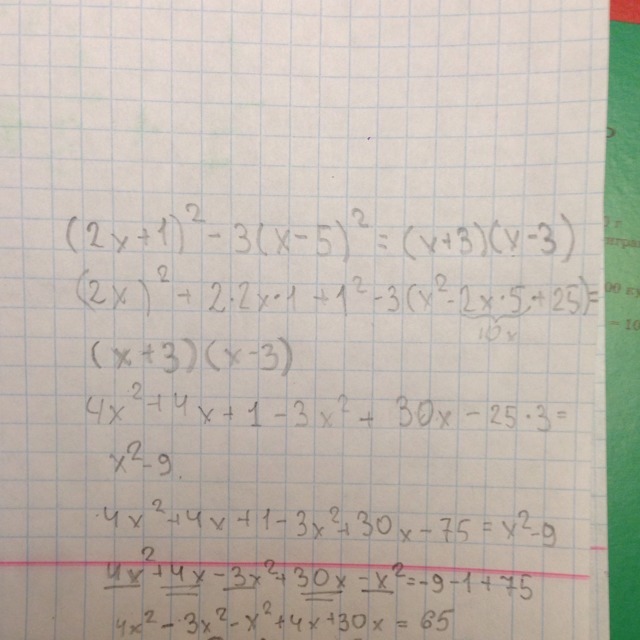 (2x+1)² - 3(x-5)² = (x+3)(x-3)
(2x)² + 2·2x·1 + 1² - 3(x² - 2x·5 + 25) =
10x
(x+3)(x-3)
4x² + 4x + 1 - 3x² + 30x - 25·3 =
x² - 9
4x² + 4x + 1 - 3x² + 30x - 75 = x² - 9
4x² + 4x - 3x² + 30x - x² = -9 - 1 + 75
4x² - 3x² - x² + 4x + 30x = 65